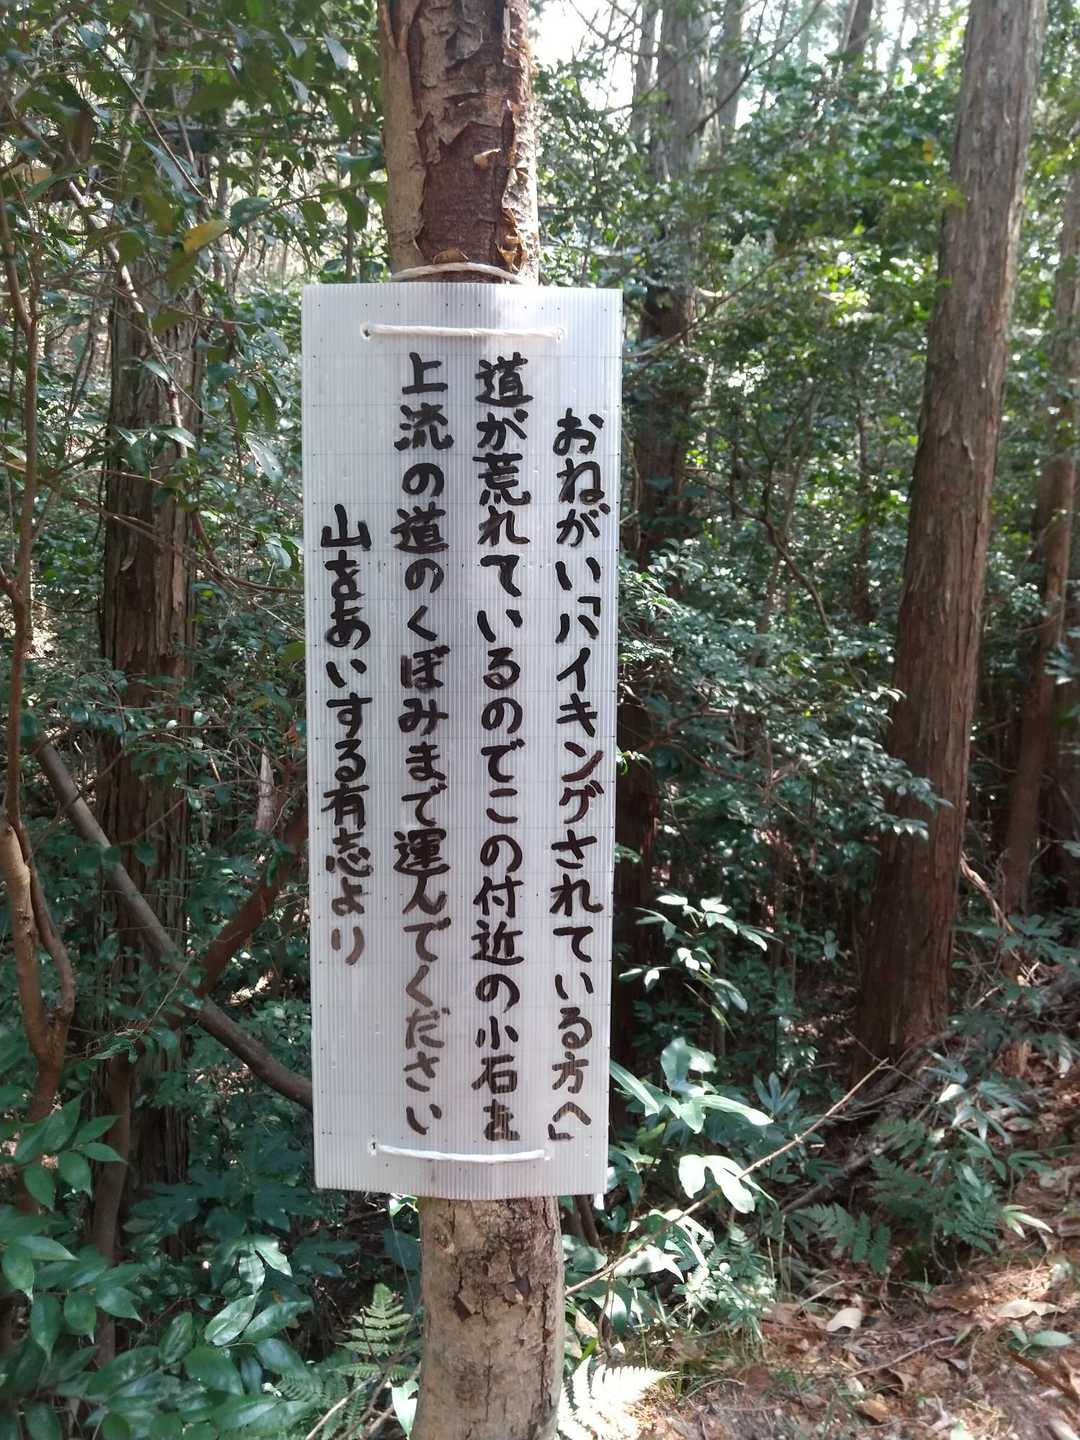 おねがい「ハイキングされている方へ」
道が荒れているのでこの付近の小石を
上流の道のくぼみまで運んでください
山をあいする有志より